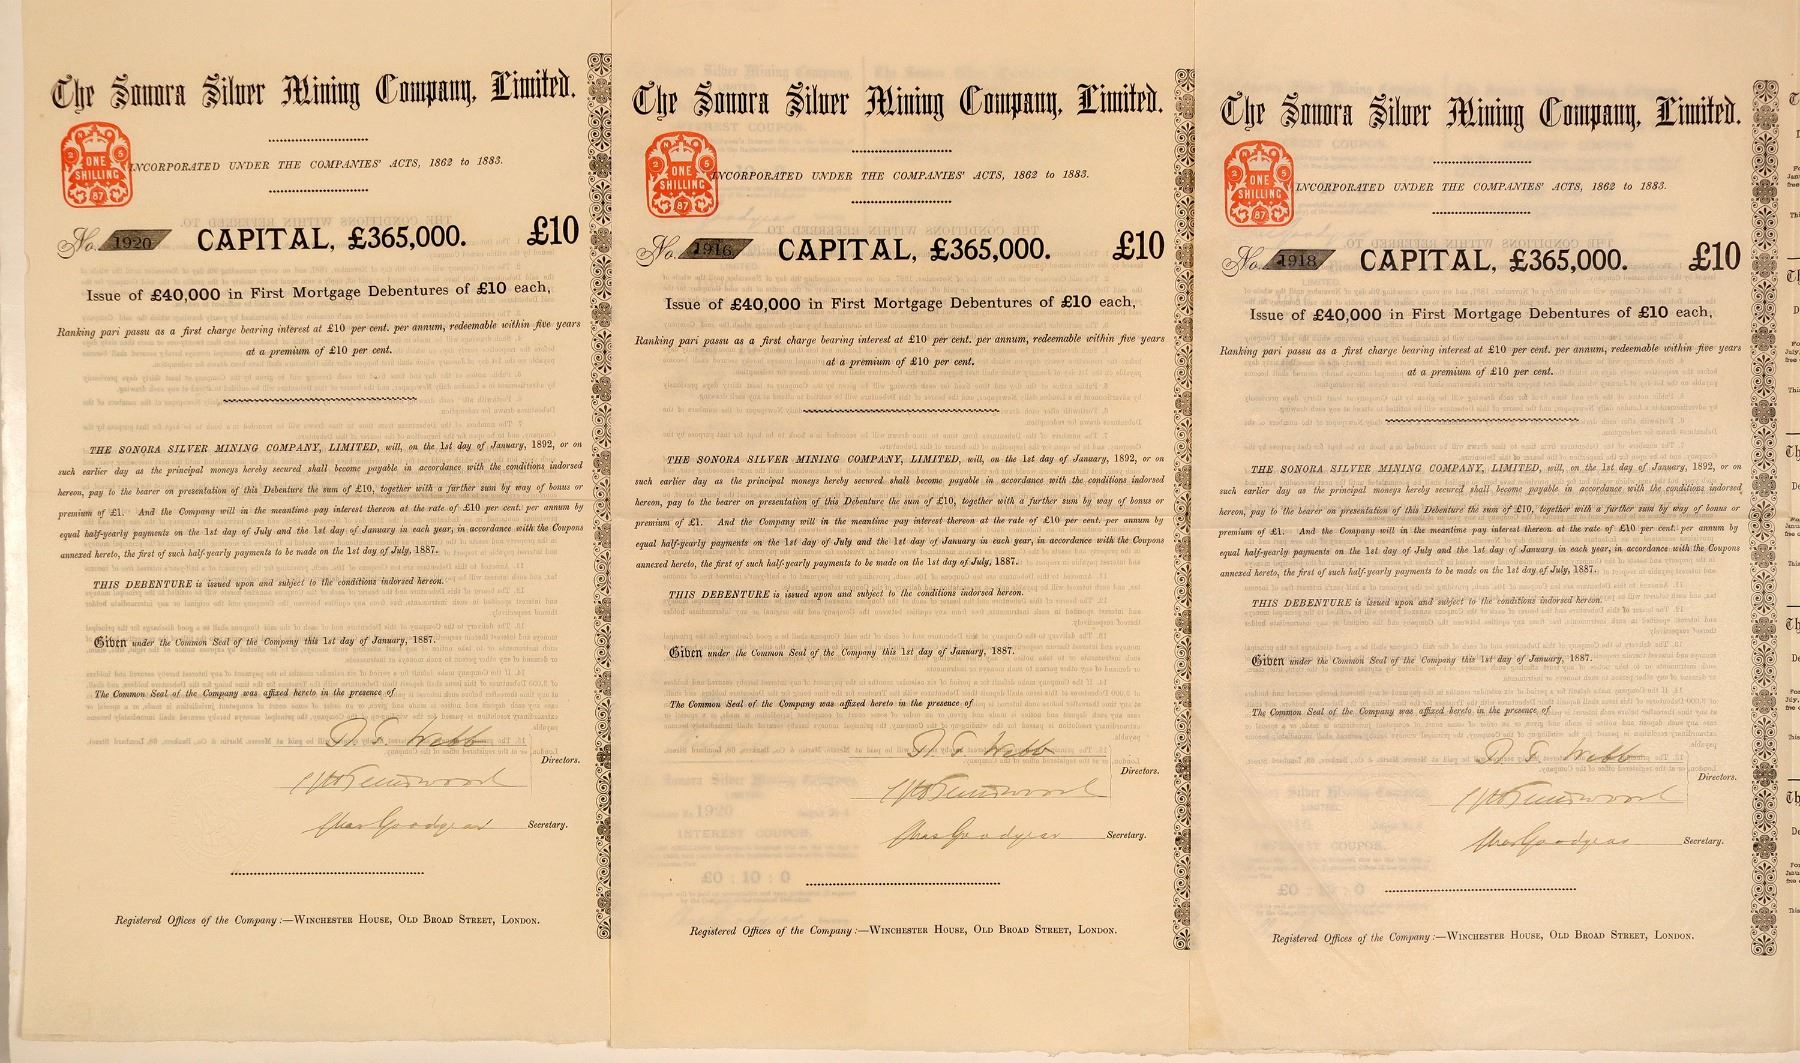 The Sonora Silver Mining Company, Limited.
N O
2 5
ONE
SHILLING
87
INCORPORATED UNDER THE COMPANIES' ACTS, 1862 to 1883.
No. 1920 CAPITAL, £365,000. £10
Issue of £40,000 in First Mortgage Debentures of £10 each,
Ranking pari passu as a first charge bearing interest at £10 per cent. per annum, redeemable within five years
at a premium of £10 per cent.
THE SONORA SILVER MINING COMPANY, LIMITED, will, on the 1st day of January, 1892, or on
such earlier day as the principal moneys hereby secured shall become payable in accordance with the conditions indorsed
hereon, pay to the bearer on presentation of this Debenture the sum of £10, together with a further sum by way of bonus or
premium of £1. And the Company will in the meantime pay interest thereon at the rate of £10 per cent. per annum by
equal half-yearly payments on the 1st day of July and the 1st day of January in each year, in accordance with the Coupons
annexed hereto, the first of such half-yearly payments to be made on the 1st day of July, 1887.
THIS DEBENTURE is issued upon and subject to the conditions indorsed hereon.
Given under the Common Seal of the Company this 1st day of January, 1887.
The Common Seal of the Company was affixed hereto in the presence of
Webb
Directors.
Chas Goodyear Secretary.
Registered Offices of the Company:—WINCHESTER HOUSE, OLD BROAD STREET, LONDON.
The Sonora Silver Mining Company, Limited.
N O
2 5
ONE
SHILLING
87
INCORPORATED UNDER THE COMPANIES' ACTS, 1862 to 1883.
No. 1916 CAPITAL, £365,000. £10
Issue of £40,000 in First Mortgage Debentures of £10 each,
Ranking pari passu as a first charge bearing interest at £10 per cent. per annum, redeemable within five years
at a premium of £10 per cent.
THE SONORA SILVER MINING COMPANY, LIMITED, will, on the 1st day of January, 1892, or on
such earlier day as the principal moneys hereby secured shall become payable in accordance with the conditions indorsed
hereon, pay to the bearer on presentation of this Debenture the sum of £10, together with a further sum by way of bonus or
premium of £1. And the Company will in the meantime pay interest thereon at the rate of £10 per cent. per annum by
equal half-yearly payments on the 1st day of July and the 1st day of January in each year, in accordance with the Coupons
annexed hereto, the first of such half-yearly payments to be made on the 1st day of July, 1887.
THIS DEBENTURE is issued upon and subject to the conditions indorsed hereon.
Given under the Common Seal of the Company this 1st day of January, 1887.
The Common Seal of the Company was affixed hereto in the presence of
Webb
Directors.
Chas Goodyear Secretary.
Registered Offices of the Company:—WINCHESTER HOUSE, OLD BROAD STREET, LONDON.
The Sonora Silver Mining Company, Limited.
N O
2 5
ONE
SHILLING
87
INCORPORATED UNDER THE COMPANIES' ACTS, 1862 to 1883.
No. 1918 CAPITAL, £365,000. £10
Issue of £40,000 in First Mortgage Debentures of £10 each,
Ranking pari passu as a first charge bearing interest at £10 per cent. per annum, redeemable within five years
at a premium of £10 per cent.
THE SONORA SILVER MINING COMPANY, LIMITED, will, on the 1st day of January, 1892, or on
such earlier day as the principal moneys hereby secured shall become payable in accordance with the conditions indorsed
hereon, pay to the bearer on presentation of this Debenture the sum of £10, together with a further sum by way of bonus or
premium of £1. And the Company will in the meantime pay interest thereon at the rate of £10 per cent. per annum by
equal half-yearly payments on the 1st day of July and the 1st day of January in each year, in accordance with the Coupons
annexed hereto, the first of such half-yearly payments to be made on the 1st day of July, 1887.
THIS DEBENTURE is issued upon and subject to the conditions indorsed hereon.
Given under the Common Seal of the Company this 1st day of January, 1887.
The Common Seal of the Company was affixed hereto in the presence of
Webb
Directors.
Chas Goodyear Secretary.
Registered Offices of the Company:—WINCHESTER HOUSE, OLD BROAD STREET, LONDON.